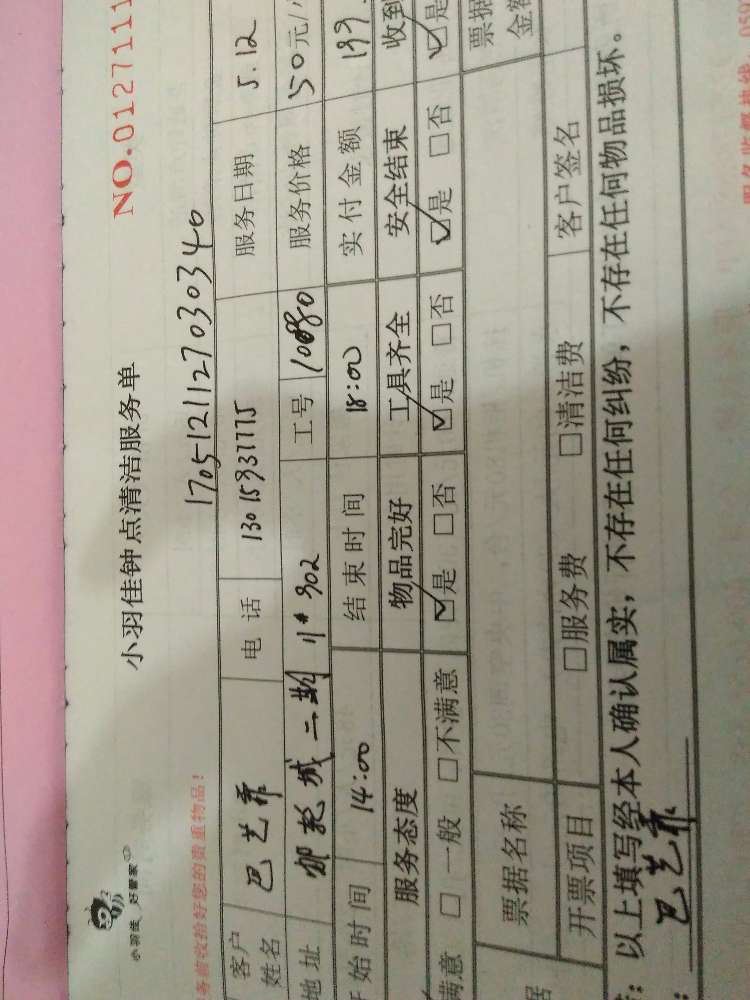 NO.0127111
小羽佳 好管家
小羽佳钟点清洁服务单
17051211127030340
务前收拾好您的贵重物品!
客户姓名 巴艺乖 电话 13015937775 服务日期 5.12
地址 二期 11# 902 工号 服务价格 50元/
开始时间 14:00 结束时间 18:00 实付金额 199.
服务态度 物品完好 工具齐全 安全结束 收到
满意 □一般 □不满意 ☑是 □否 ☑是 □否 ☑是 □否 ☑是
票据名称 票据金额
开票项目 □服务费 □清洁费 客户签名
以上填写经本人确认属实,不存在任何纠纷,不存在任何物品损坏。
巴艺乖